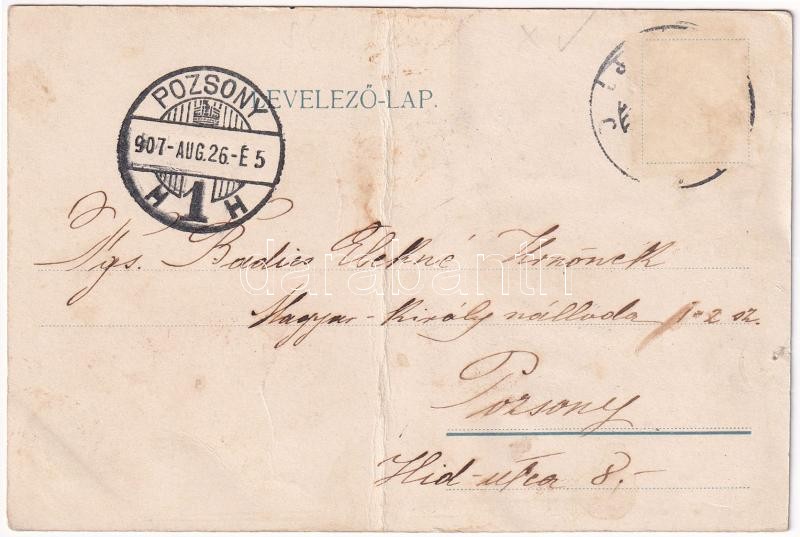 POZSONY
LEVELEZŐ-LAP.
907-AUG.26.-É 5
H 1 H
Ngs. Badics Elekné
Magyar-király szálloda 1-2 sz.
Pozsony
Híd-utca 8.-
darabanth